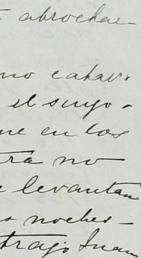 abrochar
no estaba
el suyo -
ue en los
tra no
e levantan
s noches -
trajo Juan